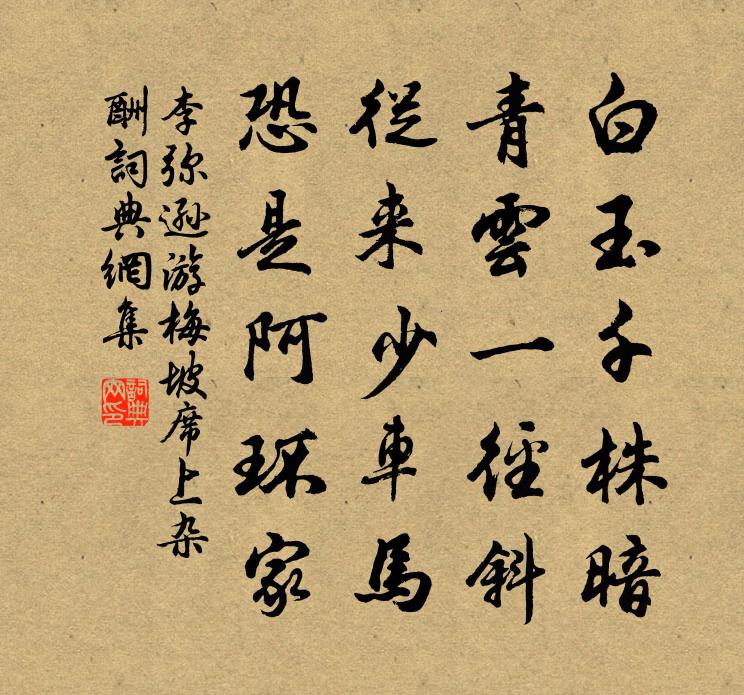 白玉千株暗
青雲一徑斜
從来少車馬
恐是阿環家
李弥遜游梅坡席上杂
酬詞典網集
詞典網印